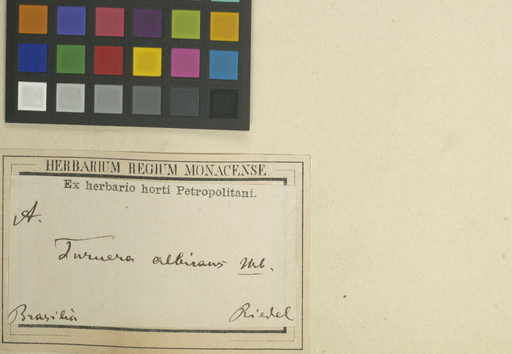 HERBARIUM REGIUM MONACENSE.
Ex herbario horti Petropolitani.
A.
Turnera albicans Urb.
Brasilia Riedel